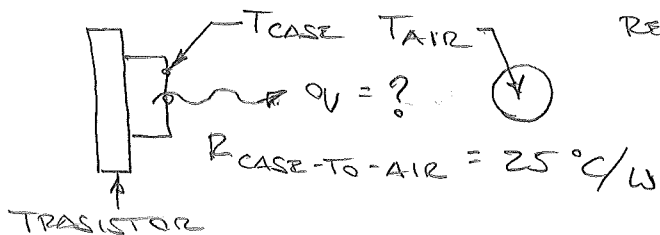 TCASE TAIR RE
q = ?
RCASE-TO-AIR = 25 °C/W
TRASISTOR